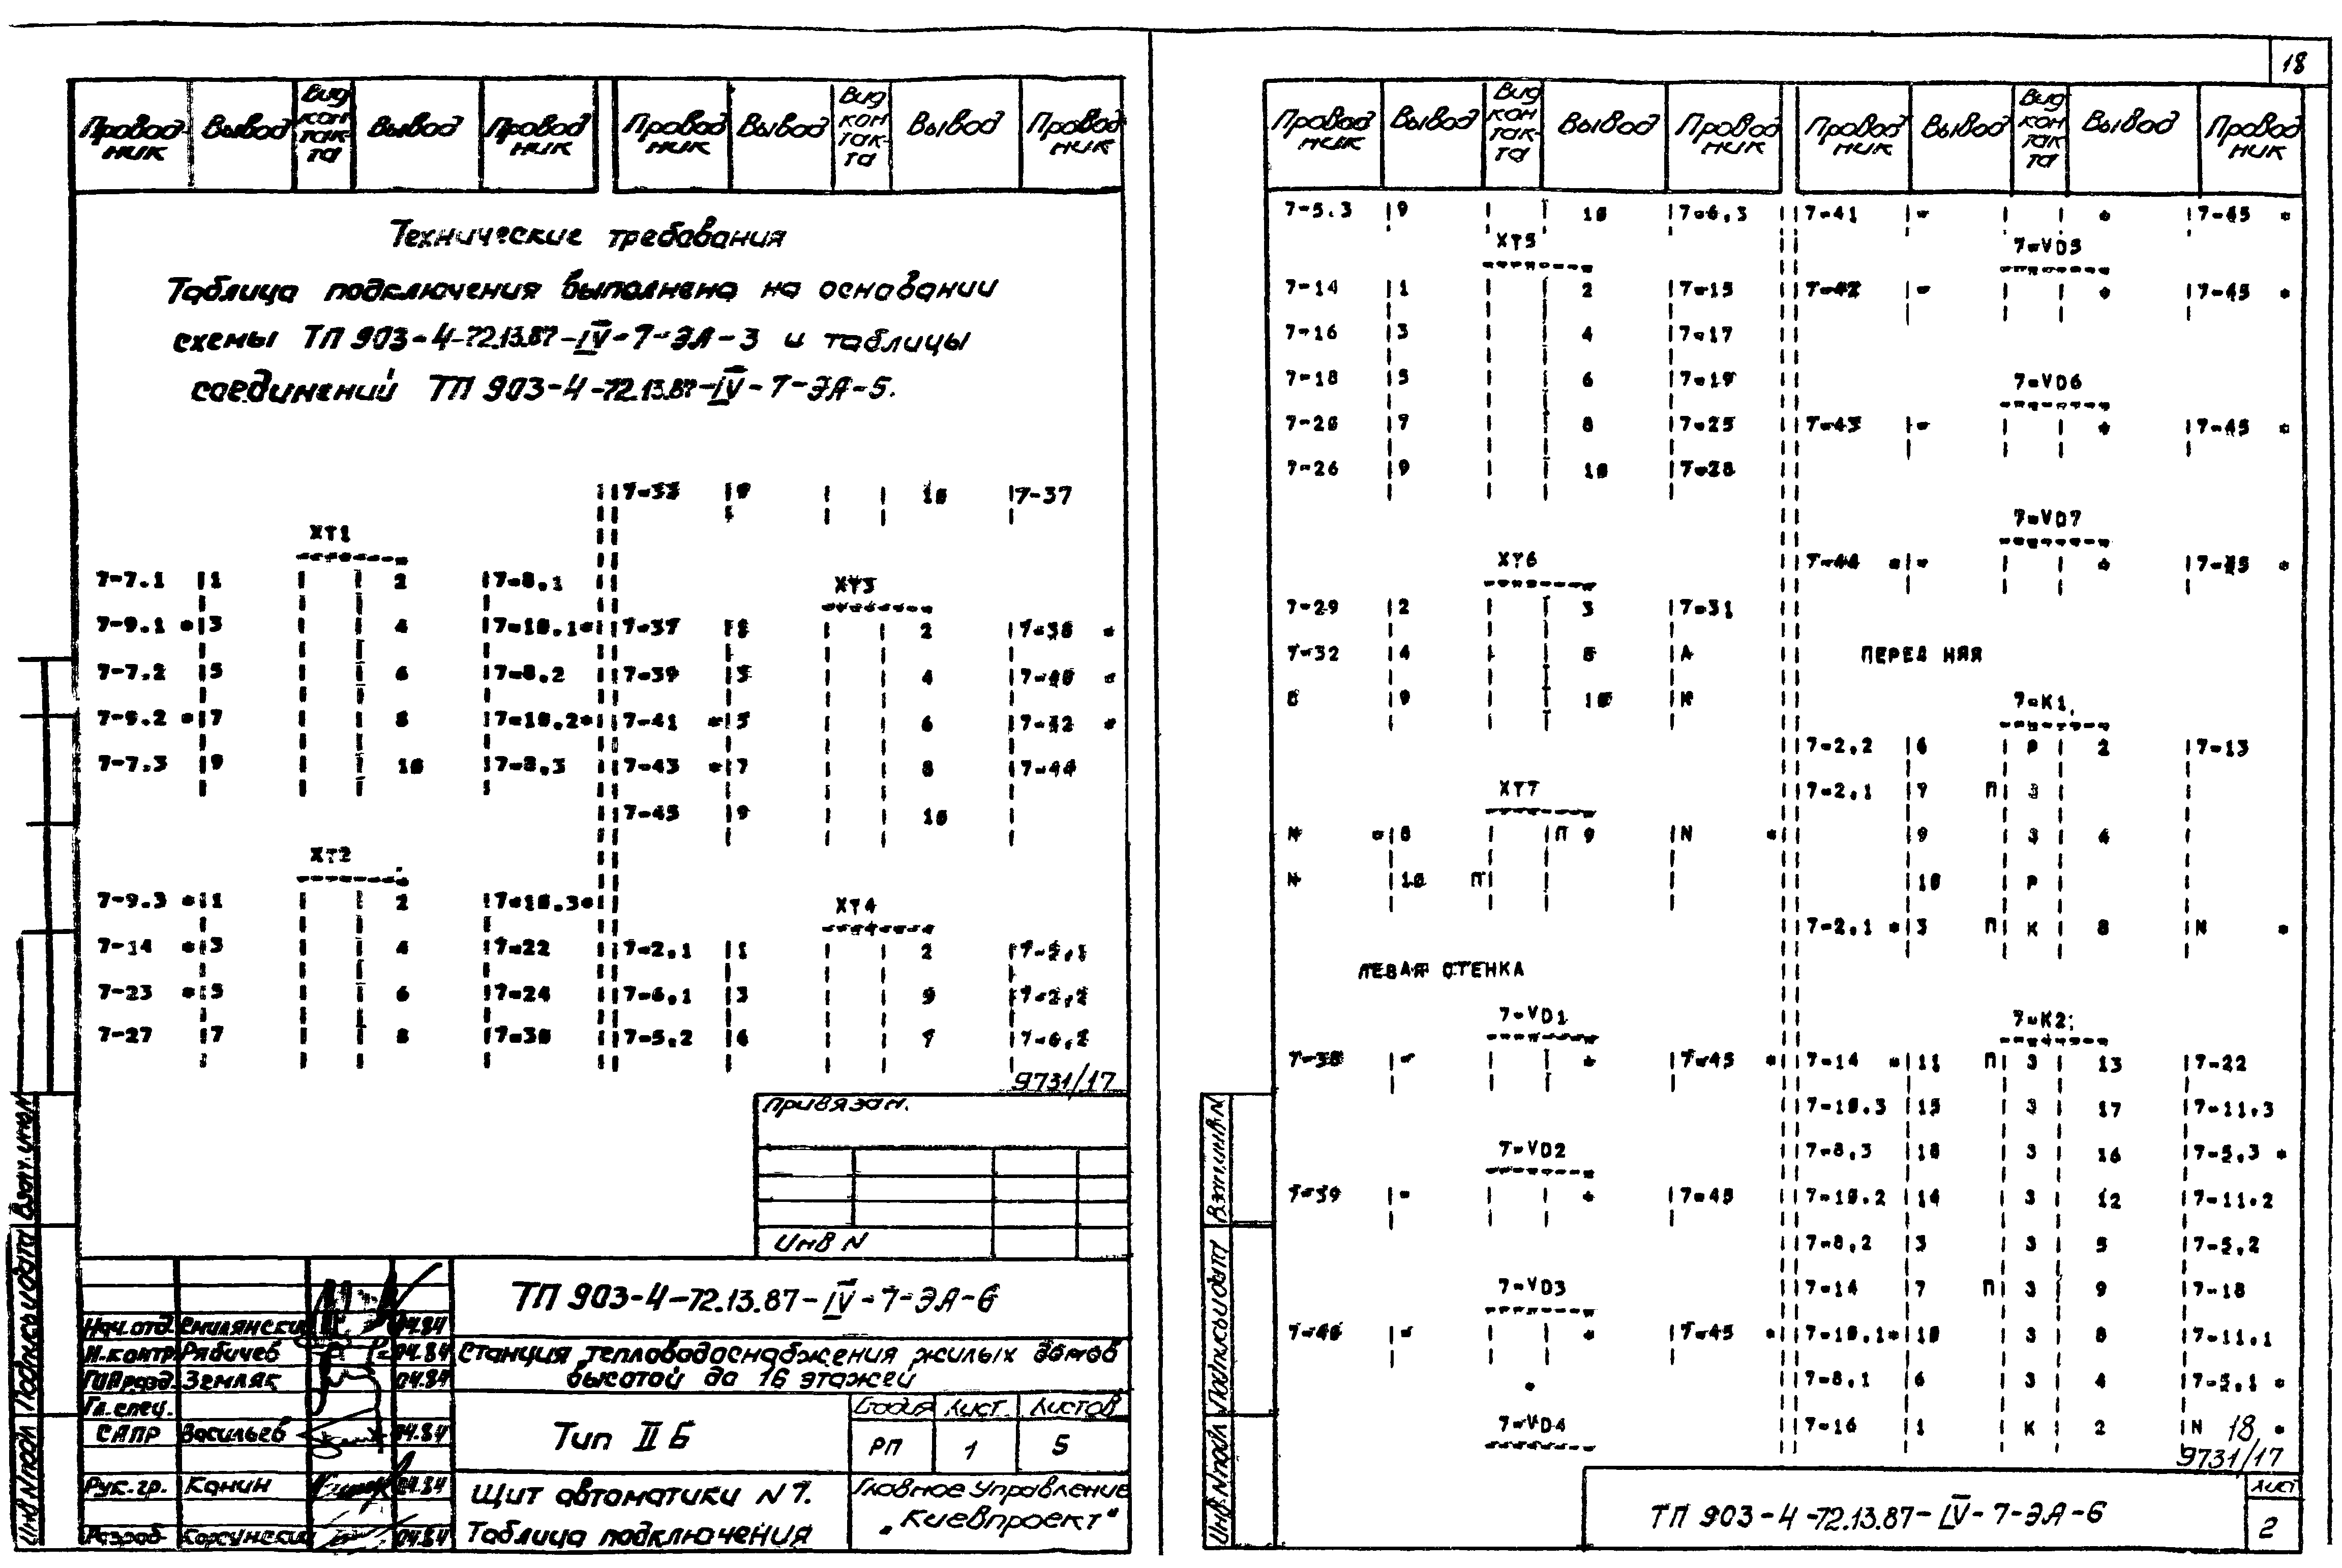 18
Провод ник Вывод Вид кон так та Вывод Провод ник Провод ник Вывод Вид кон так- та Вывод Провод ник
Технические требования
Таблица подключения выполнена на основании
схемы ТП 903-4-72.13.87-IV-7-ЭА-3 и таблицы
соединений ТП 903-4-72.13.87-IV-7-ЭА-5.
XT1
7-7.1 1 2 7-8.1
7-9.1 * 3 4 7-10.1 *
7-7.2 5 6 7-8.2
7-9.2 * 7 8 7-10.2 *
7-7.3 9 10 7-8.3
XT2
7-9.3 * 1 2 7-10.3 *
7-14 * 3 4 7-22
7-23 * 5 6 7-24
7-27 7 8 7-30
7-33 9 10 7-37
XT3
7-37 1 2 7-38 *
7-39 3 4 7-40 *
7-41 * 5 6 7-42 *
7-43 * 7 8 7-44
7-45 9 10
XT4
7-2.1 1 2 7-5.1
7-6.1 3 9 7-2.2
7-5.2 6 7 7-6.2
9731/17
Привязан.
Инв N
ТП 903-4-72.13.87-IV-7-ЭА-6
Нач.отд. Смилянский 04.84
Н.контр Рябичев 04.84
Земляк 04.84
Гл.спец.
САПР Васильев 04.84
Рук.гр. Канин 04.84
Разраб Корсунский 04.84
Станция тепловодоснабжения жилых домов
высотой до 16 этажей
Тип II Б
Стадия Лист Листов
РП 1 5
Щит автоматики N 7.
Таблица подключения
Главное Управление
„Киевпроект"
Инв N подл Подпись и дата Взам.инв.N
Провод ник Вывод Вид кон так- та Вывод Провод ник Провод ник Вывод Вид кон так та Вывод Провод ник
7-5.3 9 10 7-6.3
XT5
7-14 1 2 7-15
7-16 3 4 7-17
7-18 5 6 7-19
7-20 7 8 7-25
7-26 9 10 7-28
XT6
7-29 2 3 7-31
7-32 4 8 A
9 10
XT7
N * 8 П 9 N *
N 10 П
ЛЕВАЯ СТЕНКА
7-VD1
7-38 - + 7-45 *
7-VD2
7-39 - + 7-45
7-VD3
7-40 - + 7-45 *
7-VD4
7-41 - + 7-45 *
7-VD5
7-42 - + 7-45 *
7-VD6
7-43 - + 7-45 *
7-VD7
7-44 * - + 7-45 *
ПЕРЕД НЯЯ
7-K1.
7-2.2 6 Р 2 7-13
7-2.1 7 П З
9 З 4
10 Р
7-2.1 * 3 П К 8 N *
7-K2.
7-14 * 11 П З 13 7-22
7-10.3 15 З 17 7-11.3
7-8.3 18 З 16 7-5.3 *
7-10.2 14 З 12 7-11.2
7-8.2 3 З 5 7-5.2
7-14 7 П З 9 7-18
7-10.1 * 10 З 8 7-11.1
7-8.1 6 З 4 7-5.1 *
7-16 1 К 2 N *
18
9731/17
ТП 903-4-72.13.87-IV-7-ЭА-6
Лист
2
Инв.N подл Подпись и дата Взам.инв.N